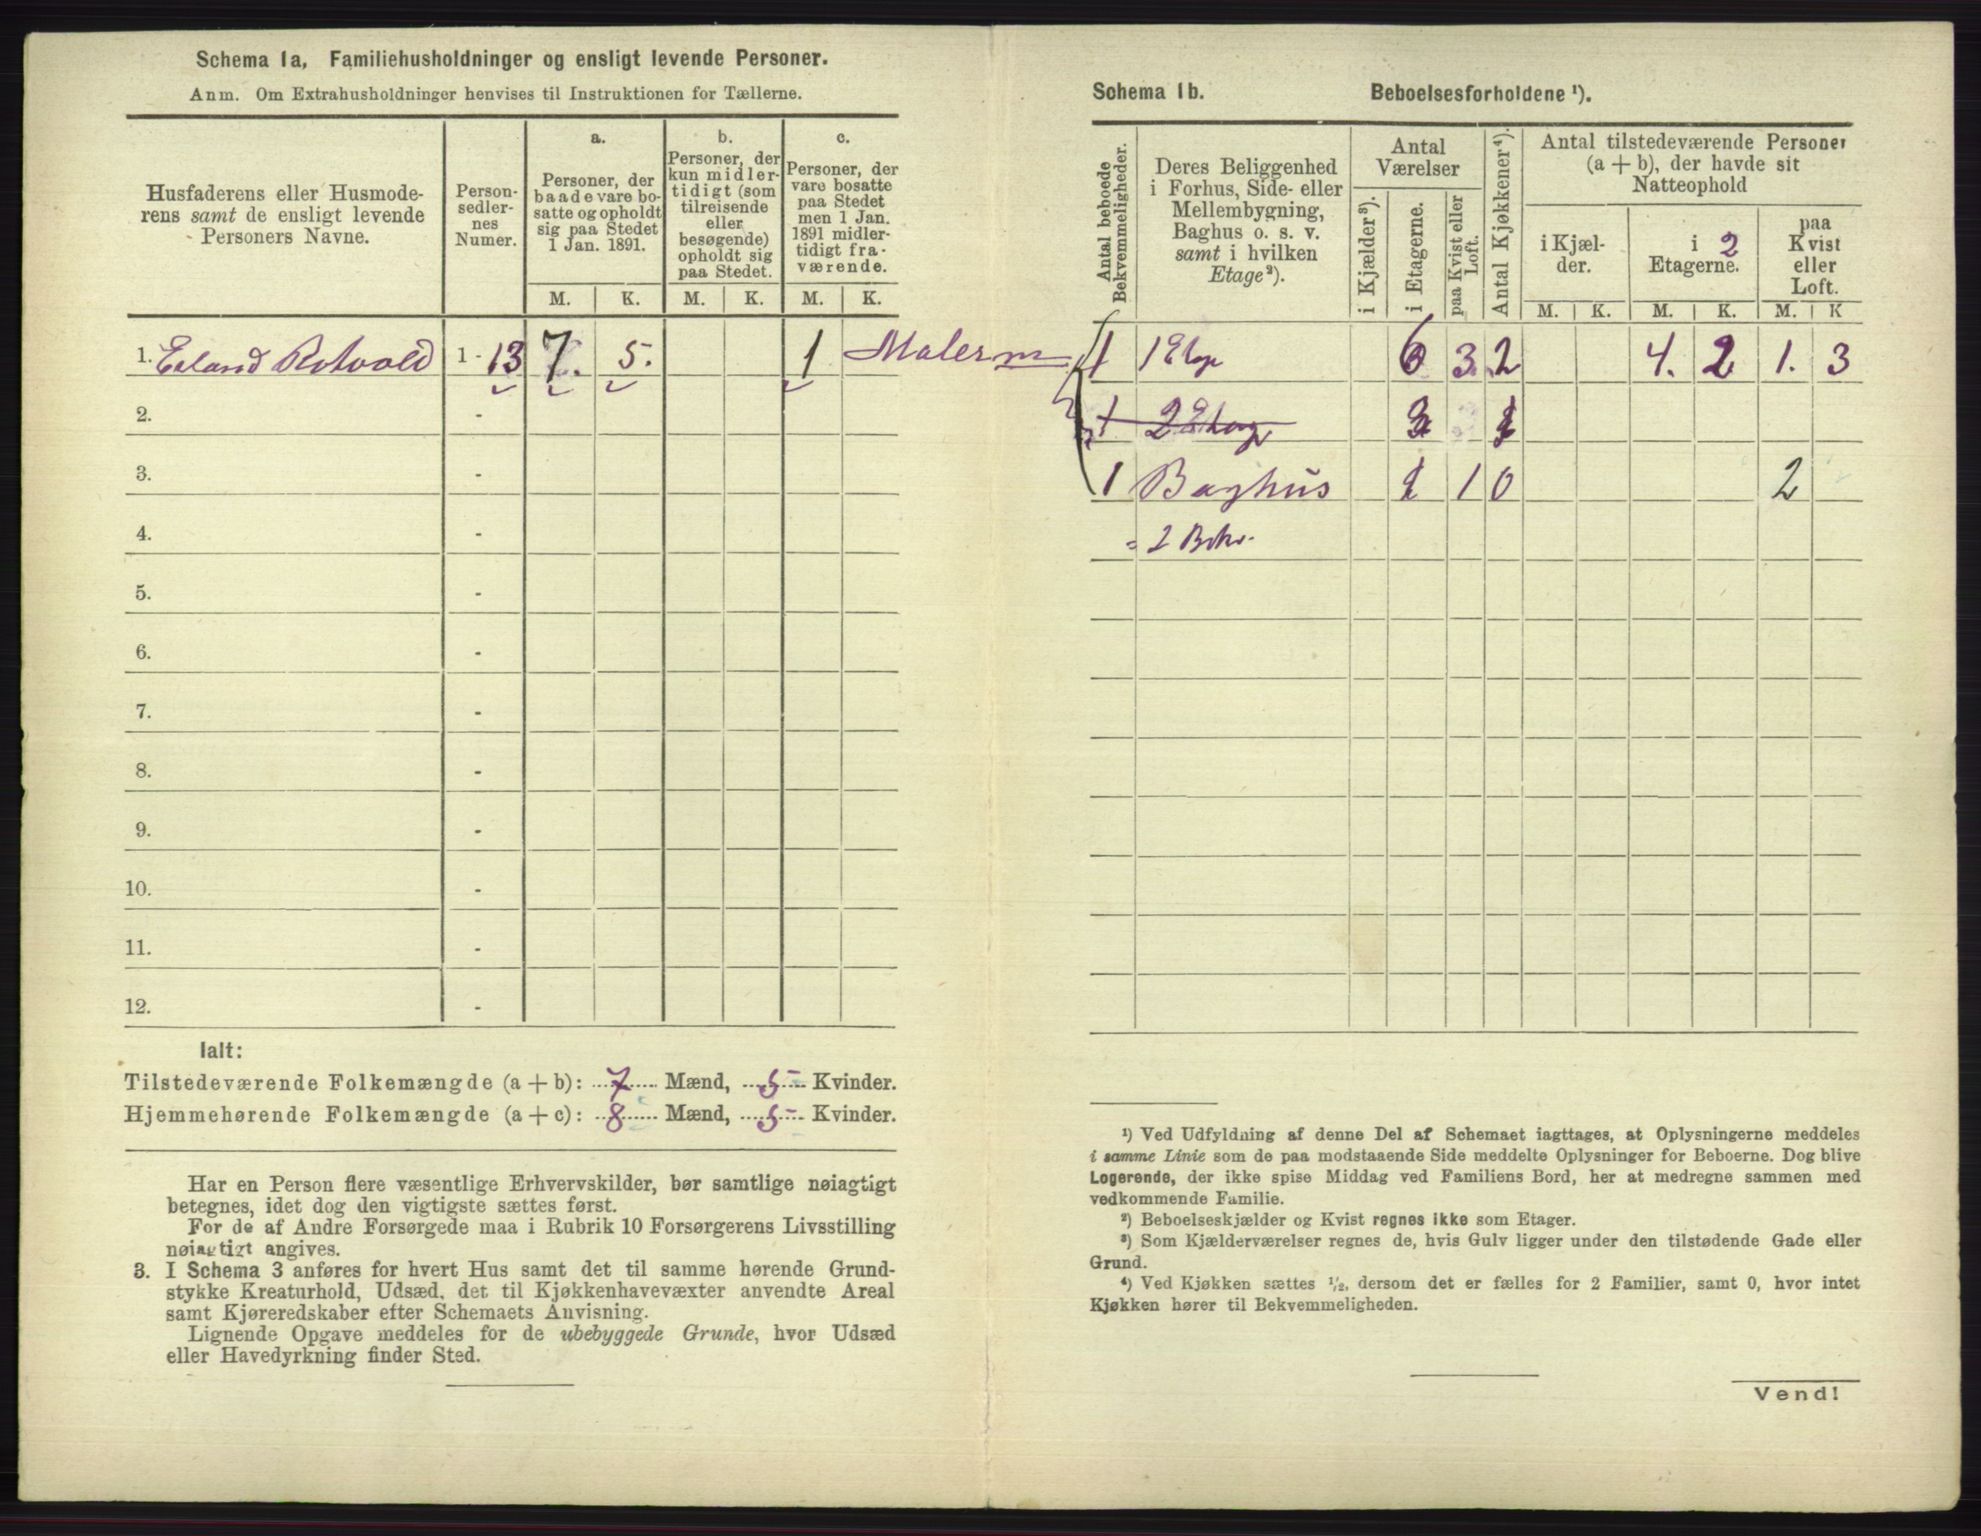 Schema 1a, Familiehusholdninger og ensligt levende Personer.
Anm. Om Extrahusholdninger henvises til Instruktionen for Tællerne.
Husfaderens eller Husmode-
rens samt de ensligt levende
Personers Navne.
Person-
sedler-
nes
Numer.
a.
Personer, der
baade vare bo-
satte og opholdt
sig paa Stedet
1 Jan. 1891.
b.
Personer, der
kun midler-
tidigt (som
tilreisende
eller
besøgende)
opholdt sig
paa Stedet.
c.
Personer, der
vare bosatte
paa Stedet
men 1 Jan.
1891 midler-
tidigt fra-
værende.
M. K. M. K. M. K.
1. Erland Rotvold 1 - 13 7. 5. 1 Malerm
2. -
3. -
4. -
5. -
6. -
7. -
8. -
9. -
10. -
11. -
12. -
Ialt:
Tilstedeværende Folkemængde (a + b): 7 Mænd, 5 Kvinder.
Hjemmehørende Folkemængde (a + c): 8 Mænd, 5 Kvinder.
Har en Person flere væsentlige Erhvervskilder, bør samtlige nøiagtigt
betegnes, idet dog den vigtigste sættes først.
For de af Andre Forsørgede maa i Rubrik 10 Forsørgerens Livsstilling
nøiagtigt angives.
3. I Schema 3 anføres for hvert Hus samt det til samme hørende Grund-
stykke Kreaturhold, Udsæd, det til Kjøkkenhavevæxter anvendte Areal
samt Kjøreredskaber efter Schemaets Anvisning.
Lignende Opgave meddeles for de ubebyggede Grunde, hvor Udsæd
eller Havedyrkning finder Sted.
Schema 1b. Beboelsesforholdene ¹).
Antal beboede
Bekvemmeligheder.
Deres Beliggenhed
i Forhus, Side- eller
Mellembygning,
Baghus o. s. v.
samt i hvilken
Etage²).
Antal
Værelser
i Kjælder³).
i Etagerne.
paa Kvist eller
Loft.
Antal Kjøkkener⁴).
Antal tilstedeværende Personer
(a + b), der havde sit
Natteophold
i Kjæl-
der.
i 2
Etagerne.
paa
Kvist
eller
Loft.
M. K. M. K. M. K
1 1 Etage 6 3 2 4. 2 1. 3
1 2 Etage
1 Baghus 1 1 0 2
= 2 Bekv.
¹) Ved Udfyldning af denne Del af Schemaet iagttages, at Oplysningerne meddeles
i samme Linie som de paa modstaaende Side meddelte Oplysninger for Beboerne. Dog blive
Logerende, der ikke spise Middag ved Familiens Bord, her at medregne sammen med
vedkommende Familie.
²) Beboelseskjælder og Kvist regnes ikke som Etager.
³) Som Kjælderværelser regnes de, hvis Gulv ligger under den tilstødende Gade eller
Grund.
⁴) Ved Kjøkken sættes ½, dersom det er fælles for 2 Familier, samt 0, hvor intet
Kjøkken hører til Bekvemmeligheden.
Vend!